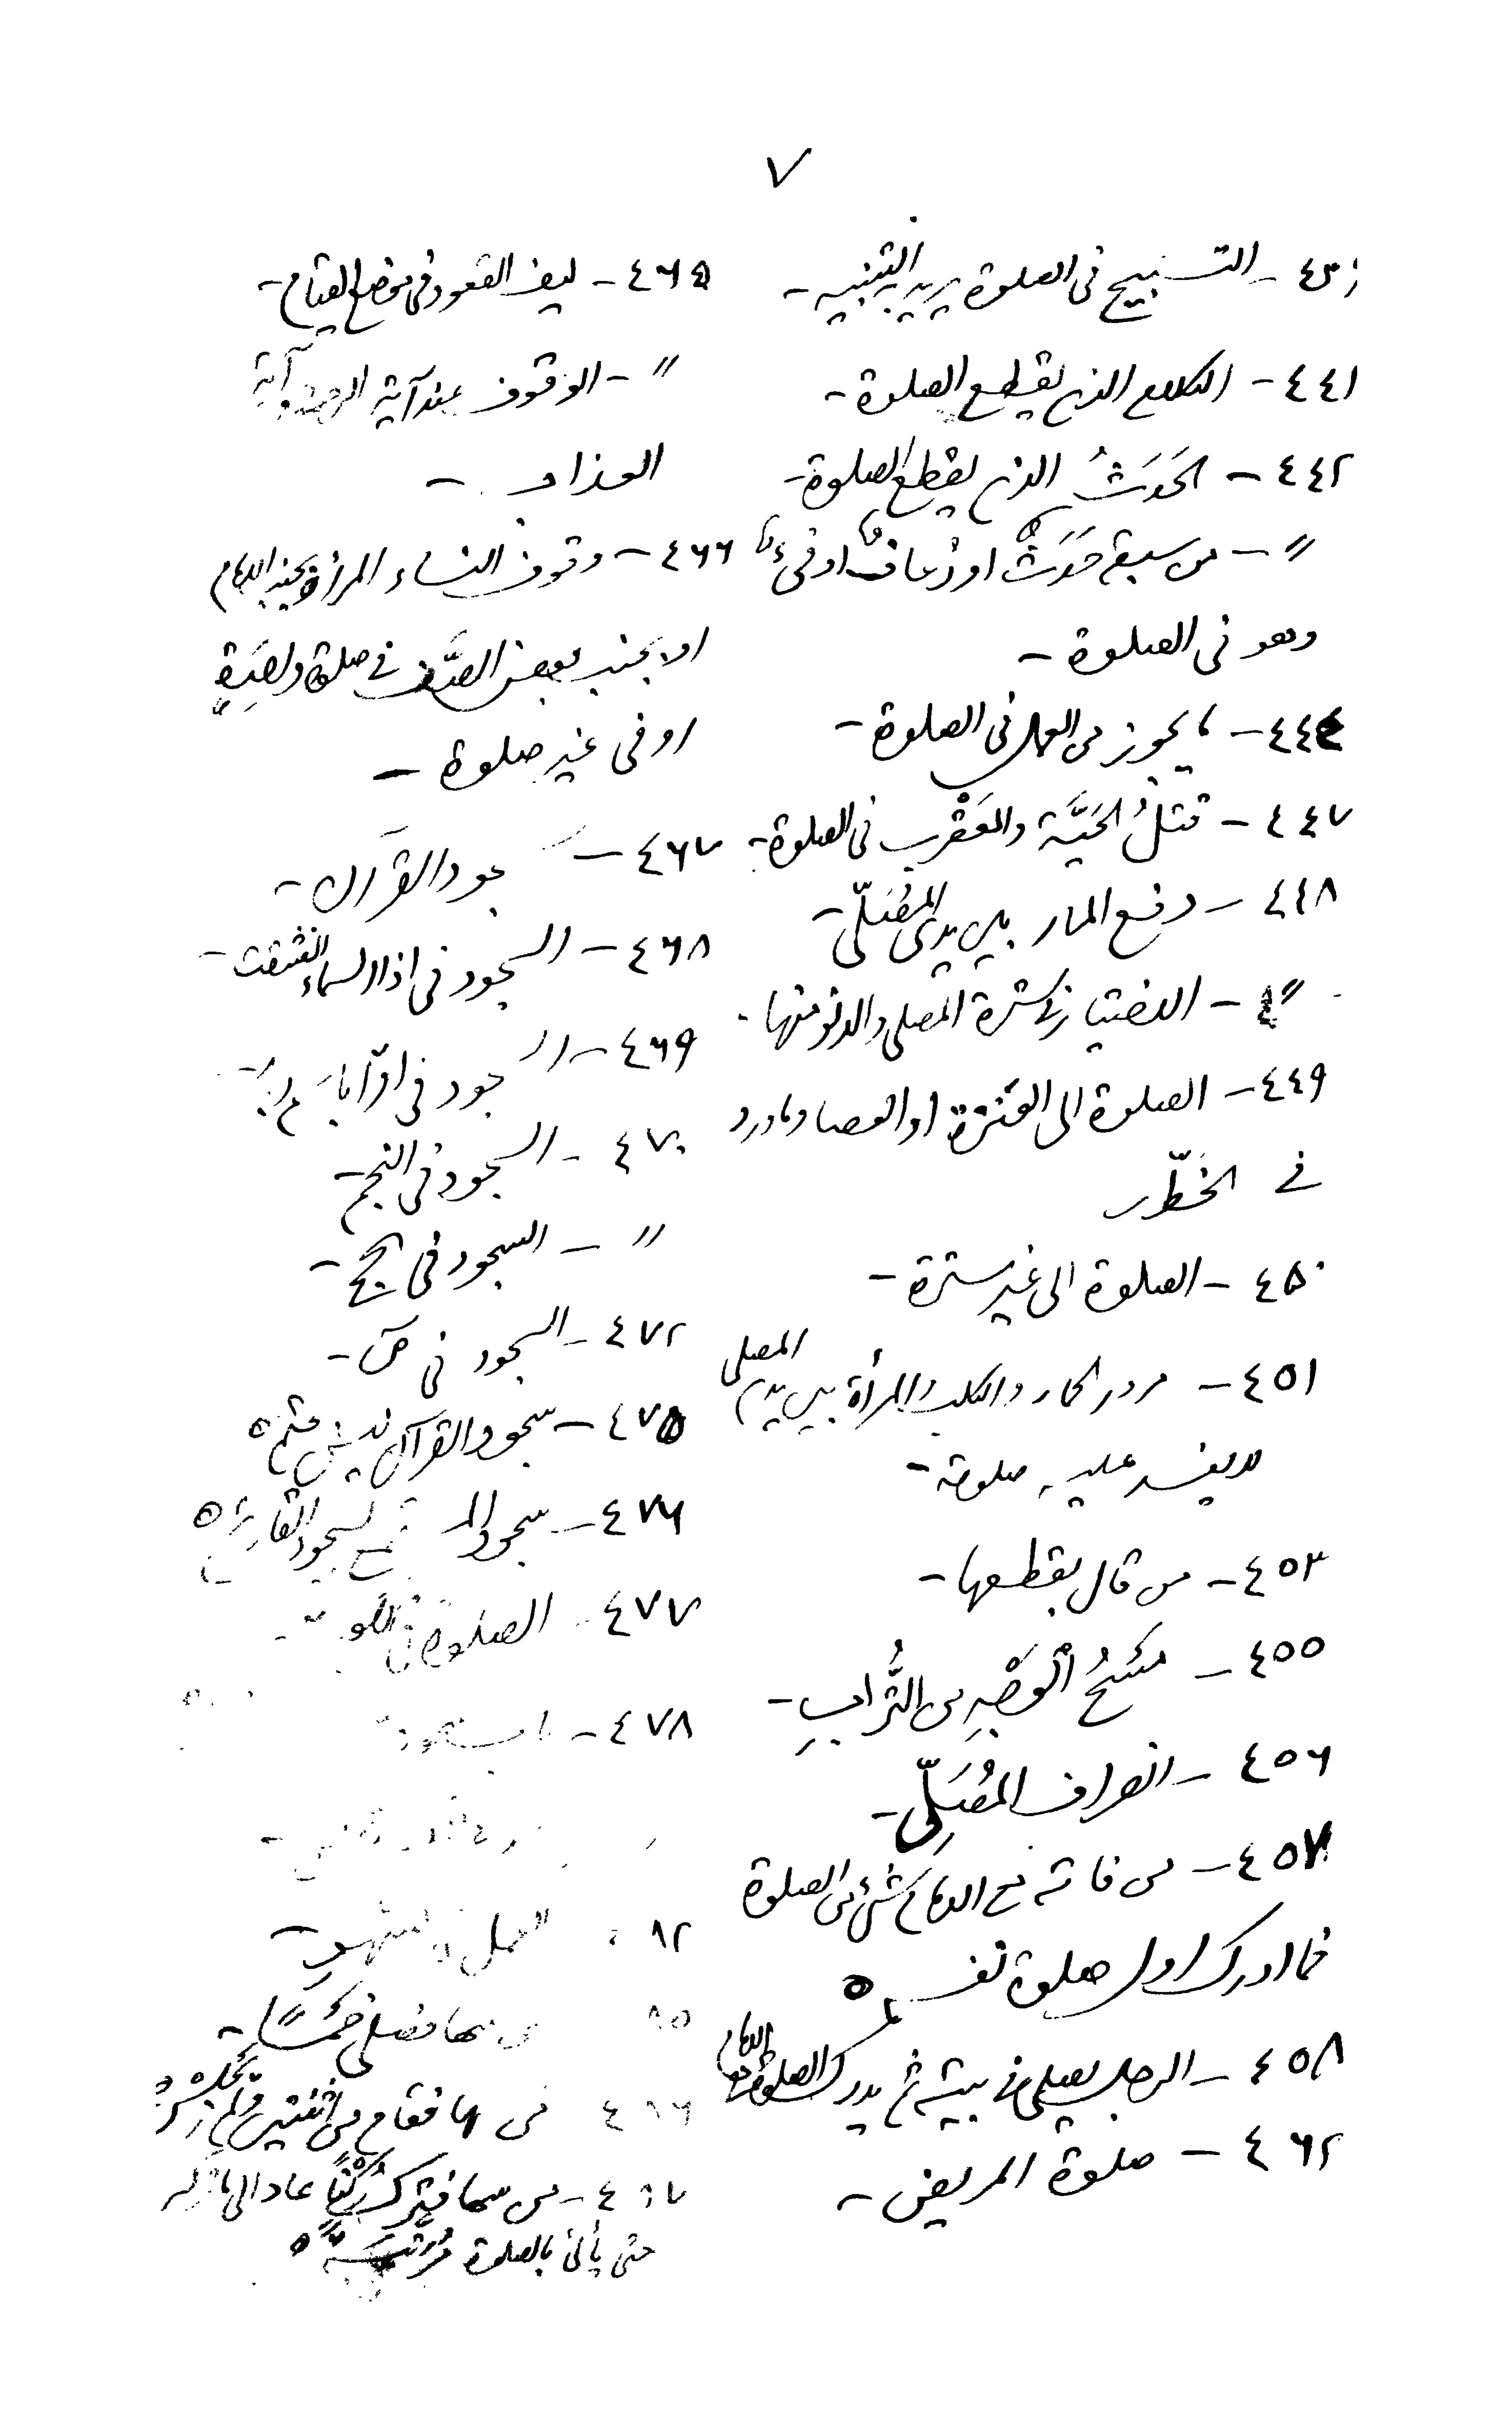 ٧
٤٣٩ - التسبيح فى الصلوة يريد التنبيه -
٤٤١ - الكلام الذى يقطع الصلوة -
٤٤٢ - الحَدَثُ الذى يقطع الصلوة -
" - من سبقه حَدَثٌ او رُعافٌ او قىءٌ
وهو فى الصلوة -
٤٤٤ - ما يجوز من العمل فى الصلوة -
٤٤٧ - قتلُ الحَيَّة والعَقْرب فى الصلوة -
٤٤٨ - دفع المار بين يدى المُصَلّى -
" - الاختيار فى سترة المصلى والدنو منها -
٤٤٩ - الصلوة الى العَنَزة او العصا وما ورد
فى الخطّ -
٤٥٠ - الصلوة الى غير سترة -
٤٥١ - مرور الحمار والكلب والمرأة بين يدى المصلى
لا يفسد عليه صلوته -
٤٥٣ - من قال يقطعها -
٤٥٥ - مَسْحُ الْوَجْهِ من التُّرابِ -
٤٥٦ - انصراف المُصَلِّى -
٤٥٧ - من فاته مع الامام شىء من الصلوة
فما ادرك اول صلوة نفسه
٤٥٨ - الرجل يصلى فى بيته ثم يدرك الصلوة مع الامام
٤٦٢ - صلوة المريض -
٤٦٥ - كيف القعود فى موضع القيام -
" - الوقوف عند آية الرحمة وآية
العذاب -
٤٦٦ - وقوف النساء المرأة بجنب الامام
او بجنب بعض الصَّف فى صلوة واحدةٍ
او فى غير صلوة -
٤٦٧ - سجود القرآن -
٤٦٨ - السجود فى اذا السماء انشقت -
٤٦٩ - السجود فى اقرأ باسم ربك -
٤٧٠ - السجود فى النجم -
" - السجود فى الحج -
٤٧٢ - السجود فى صٓ -
٤٧٥ - سجود القرآن
٤٧٦ - سجود المستمع لسجود القارئ
٤٧٧ - الصلوة فى
٤٧٨ -
٨٢ العمل فى السهو -
٨٥ من سها فصلى خَمْسًا -
من سها فقام من اثنتين ولم يجلس
من سها فترك رُكْنًا عاد الى ما تركه
حتى يأتى بالصلوة مُرَتَّبَةً